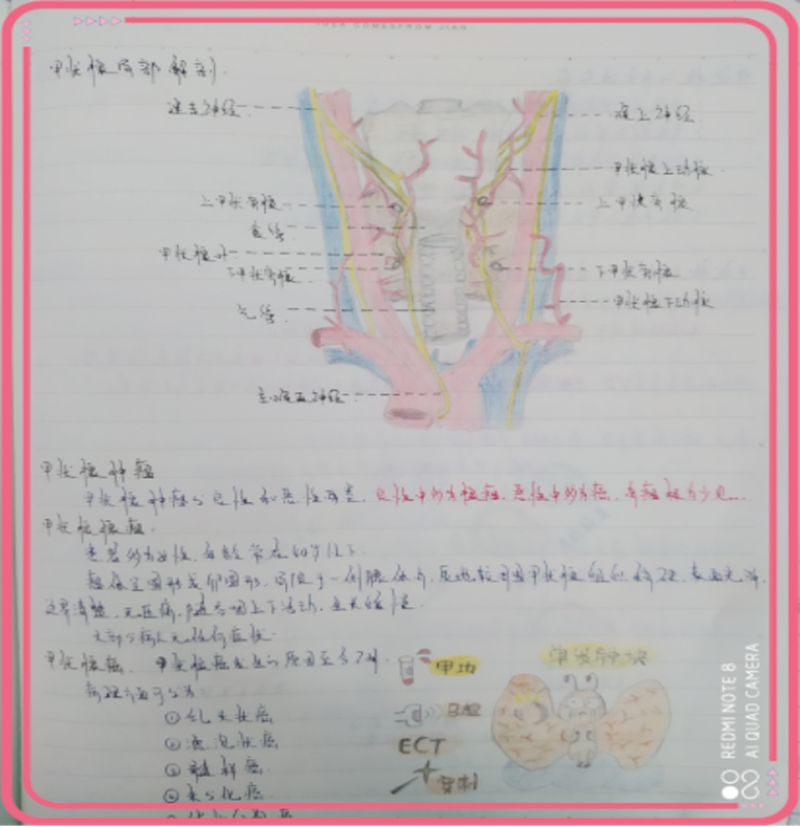 IDEA COMES FROM JIAN
甲状腺局部解剖
迷走神经
喉上神经
甲状腺上动脉
上甲状旁腺
上甲状旁腺
食管
甲状腺
下甲状旁腺
下甲状旁腺
甲状腺下动脉
气管
喉返神经
甲状腺肿瘤
甲状腺肿瘤分良性和恶性两类.良性中多为腺瘤,恶性中多为癌,肉瘤极为少见...
甲状腺腺瘤.
患者多为女性,年龄常在40岁以下.
瘤体呈圆形或卵圆形,局限于一侧腺体内,质地较周围甲状腺组织稍硬,表面光滑,
边界清楚,无压痛,随吞咽上下活动,生长缓慢.
大部分病人无任何症状.
甲状腺癌. 甲状腺癌发生的原因至今不明.
病理方面可分为
①乳头状癌
②滤泡状癌
③髓样癌
④未分化癌
甲功
B超
ECT
穿刺
单发肿块
REDMI NOTE 8
AI QUAD CAMERA